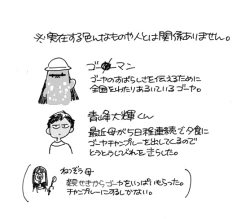 ※実在する色んなものや人とは関係ありません。
ゴーヤマン
ゴーヤのすばらしさを伝えるために
全国をかけたりあるいているゴーヤ。
青峰大輝くん
最近母が5日程連続で夕食に
ゴーヤチャンプルーを出してくるので
とうとうしびれをきらした。
ねっぞう母
親せきからゴーヤをいっぱいもらった。
チャンプルーにするしかない。